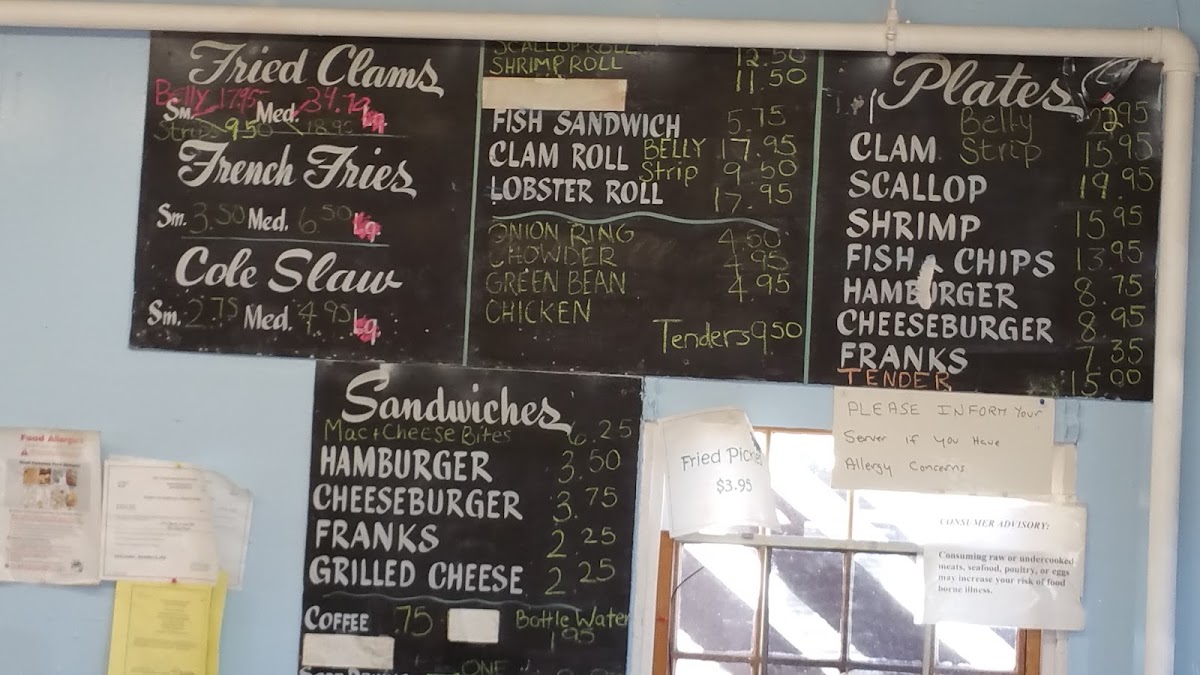 Fried Clams
Belly 17.95
Sm. Med. Lg
Strips 9.50 18.95
French Fries
Sm. 3.50 Med. 6.50 Lg
Cole Slaw
Sm. 2.75 Med. 4.95 Lg
SCALLOP ROLL 12.50
SHRIMP ROLL 11.50
FISH SANDWICH 5.75
CLAM ROLL BELLY 17.95
Strip 9.50
LOBSTER ROLL 17.95
ONION RING 4.50
CHOWDER 4.95
GREEN BEAN 4.95
CHICKEN
Tenders 9.50
Plates
Belly 22.95
CLAM Strip 15.95
SCALLOP 19.95
SHRIMP 15.95
FISH & CHIPS 13.95
HAMBURGER 8.75
CHEESEBURGER 8.95
FRANKS 7.35
TENDER 15.00
Sandwiches
Mac + Cheese Bites 6.25
HAMBURGER 3.50
CHEESEBURGER 3.75
FRANKS 2.25
GRILLED CHEESE 2.25
COFFEE .75 Bottle Water
1.95
ONE
Fried Pickle
$3.95
PLEASE INFORM Your
Server if you Have
Allergy Concerns
CONSUMER ADVISORY:
Consuming raw or undercooked
meats, seafood, poultry, or eggs
may increase your risk of food
borne illness.
Food Allergies